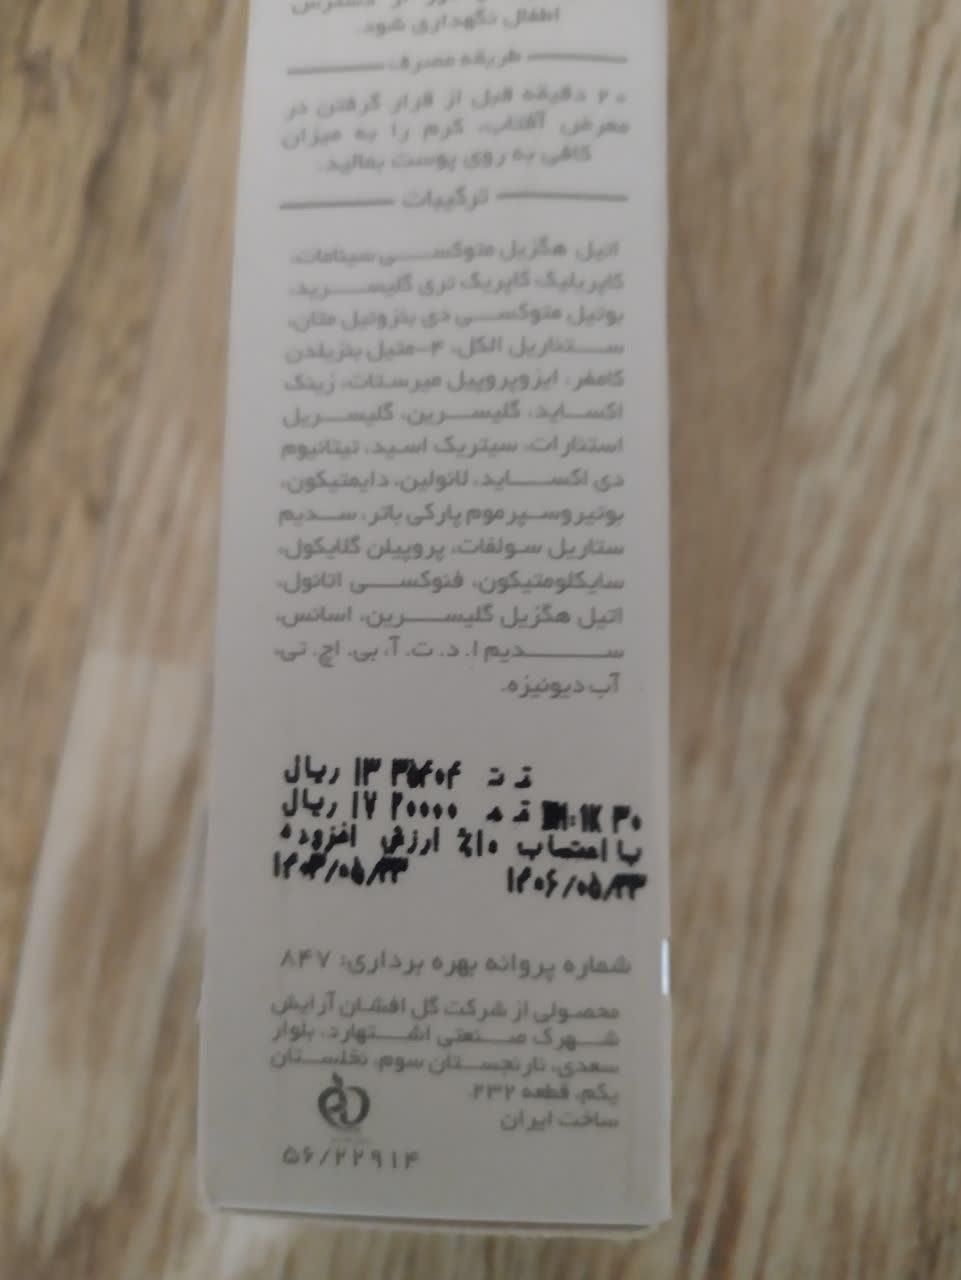 اطفال نگهداری شود.
طریقه مصرف
۲۰ دقیقه قبل از قرار گرفتن در
معرض آفتاب، کرم را به میزان
کافی به روی پوست بمالید.
ترکیبات
اتیل هگزیل متوکسی سینامات،
کاپریلیک کاپریک تری گلیسرید،
بوتیل متوکسی دی بنزوئیل متان،
ستئاریل الکل، ۴-متیل بنزیلدن
کامفر، ایزوپروپیل میرستات، زینک
اکساید، گلیسرین، گلیسریل
استئارات، سیتریک اسید، تیتانیوم
دی اکساید، لانولین، دایمتیکون،
بوتیروسپرموم پارکی باتر، سدیم
ستاریل سولفات، پروپیلن گلایکول،
سایکلومتیکون، فنوکسی اتانول،
اتیل هگزیل گلیسرین، اسانس،
سدیم ا. د. ت. آ، بی. اچ. تی،
آب دیونیزه.
ت ت ریال
ق م ۱۷۲۰۰۰۰ ریال
با احتساب ۱۰٪ ارزش افزوده
۱۴۰۶/۰۵/۲۳ ۱۴۰۳/۰۵/۲۳
شماره پروانه بهره برداری: ۸۴۷
محصولی از شرکت گل افشان آرایش
شهرک صنعتی اشتهارد، بلوار
سعدی، نارنجستان سوم، نخلستان
یکم، قطعه ۲۳۲
ساخت ایران
۵۶/۲۲۹۱۴